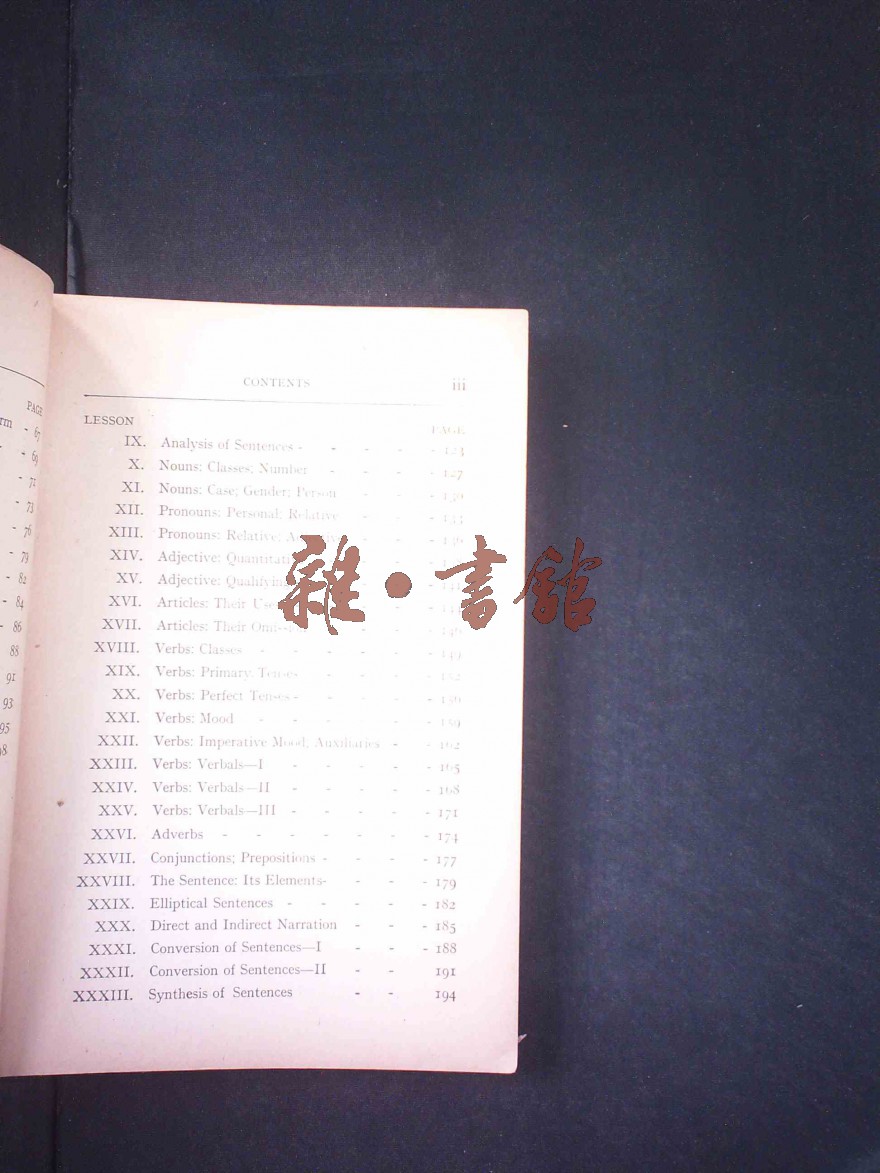 PAGE
rm - 67
- 69
- 71
- 73
- 76
- 79
- 82
- 84
- 86
88
91
93
95
98
CONTENTS iii
LESSON PAGE
IX. Analysis of Sentences - - - - - 123
X. Nouns: Classes; Number - - - - 127
XI. Nouns: Case; Gender; Person - - - 130
XII. Pronouns: Personal; Relative - - - 133
XIII. Pronouns: Relative; - - 136
XIV. Adjective: -
XV. Adjective: - - 141
XVI. Articles: Their - -
XVII. Articles: Their - - 146
XVIII. Verbs: Classes - - - - - - 149
XIX. Verbs: Primary Tenses - - - - - 152
XX. Verbs: Perfect Tenses - - - - - 156
XXI. Verbs: Mood - - - - - - 159
XXII. Verbs: Imperative Mood, Auxiliaries - - 162
XXIII. Verbs: Verbals—I - - - - - 165
XXIV. Verbs: Verbals—II - - - - - 168
XXV. Verbs: Verbals—III - - - - - 171
XXVI. Adverbs - - - - - - - 174
XXVII. Conjunctions; Prepositions - - - - 177
XXVIII. The Sentence: Its Elements- - - - 179
XXIX. Elliptical Sentences - - - - - 182
XXX. Direct and Indirect Narration - - - 185
XXXI. Conversion of Sentences—I - - - 188
XXXII. Conversion of Sentences—II - - 191
XXXIII. Synthesis of Sentences - - 194
雜•書館